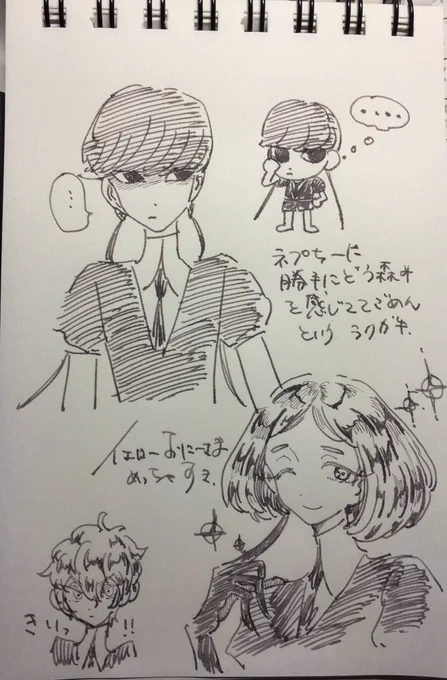 ....
...
ネプちーに
勝手にどう森み
を感じててごめん
という ラクガキ.
イエローおにーさま
めっちゃすき.
きぃっ!!